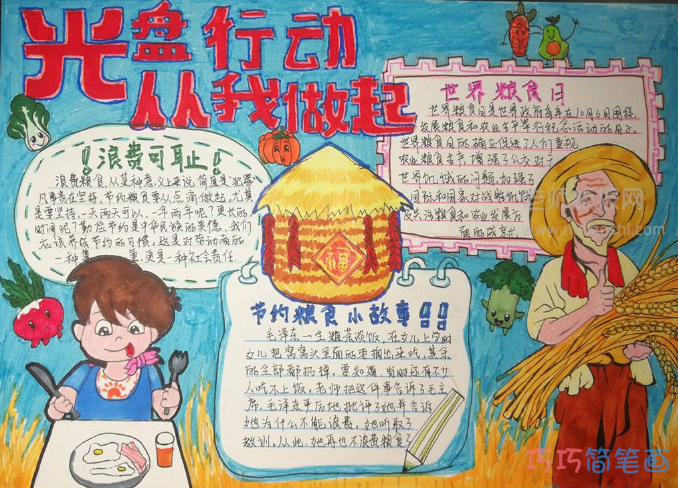 光盘行动
从我做起
世界粮食日
世界粮食日是世界政府每年在10月16日围绕
发展粮食和农业生产举行纪念活动的日子。
世界粮食日的确立促进了人们重视
农业粮食生产,
世界
国际和国
及关注粮食和农业发展方
面的成就。
浪费可耻
浪费粮食从某种意义上来说简直是犯罪
凡事贵在坚持,节约粮食要从点滴做起,尤其
是要坚持,一天两天可以,一年两年呢?更长的
时间呢?勤俭节约是中华民族的美德,我们
应该养成节约的习惯,这是对劳动者的
一种尊重,更是一种社会责任。
福
节约粮食小故事
毛泽东一生粗茶淡饭,在女儿上学时
女儿把窝窝头里面的枣掏出来吃,其余
的全部都扔掉,要知道,当时还有不少
人吃不上饭,老师把这件事告诉了毛主
席,毛泽东严厉地批评了她并告诉
她为什么不能浪费,她听取了
教训,从此,她再也不浪费粮食了
巧巧简笔画